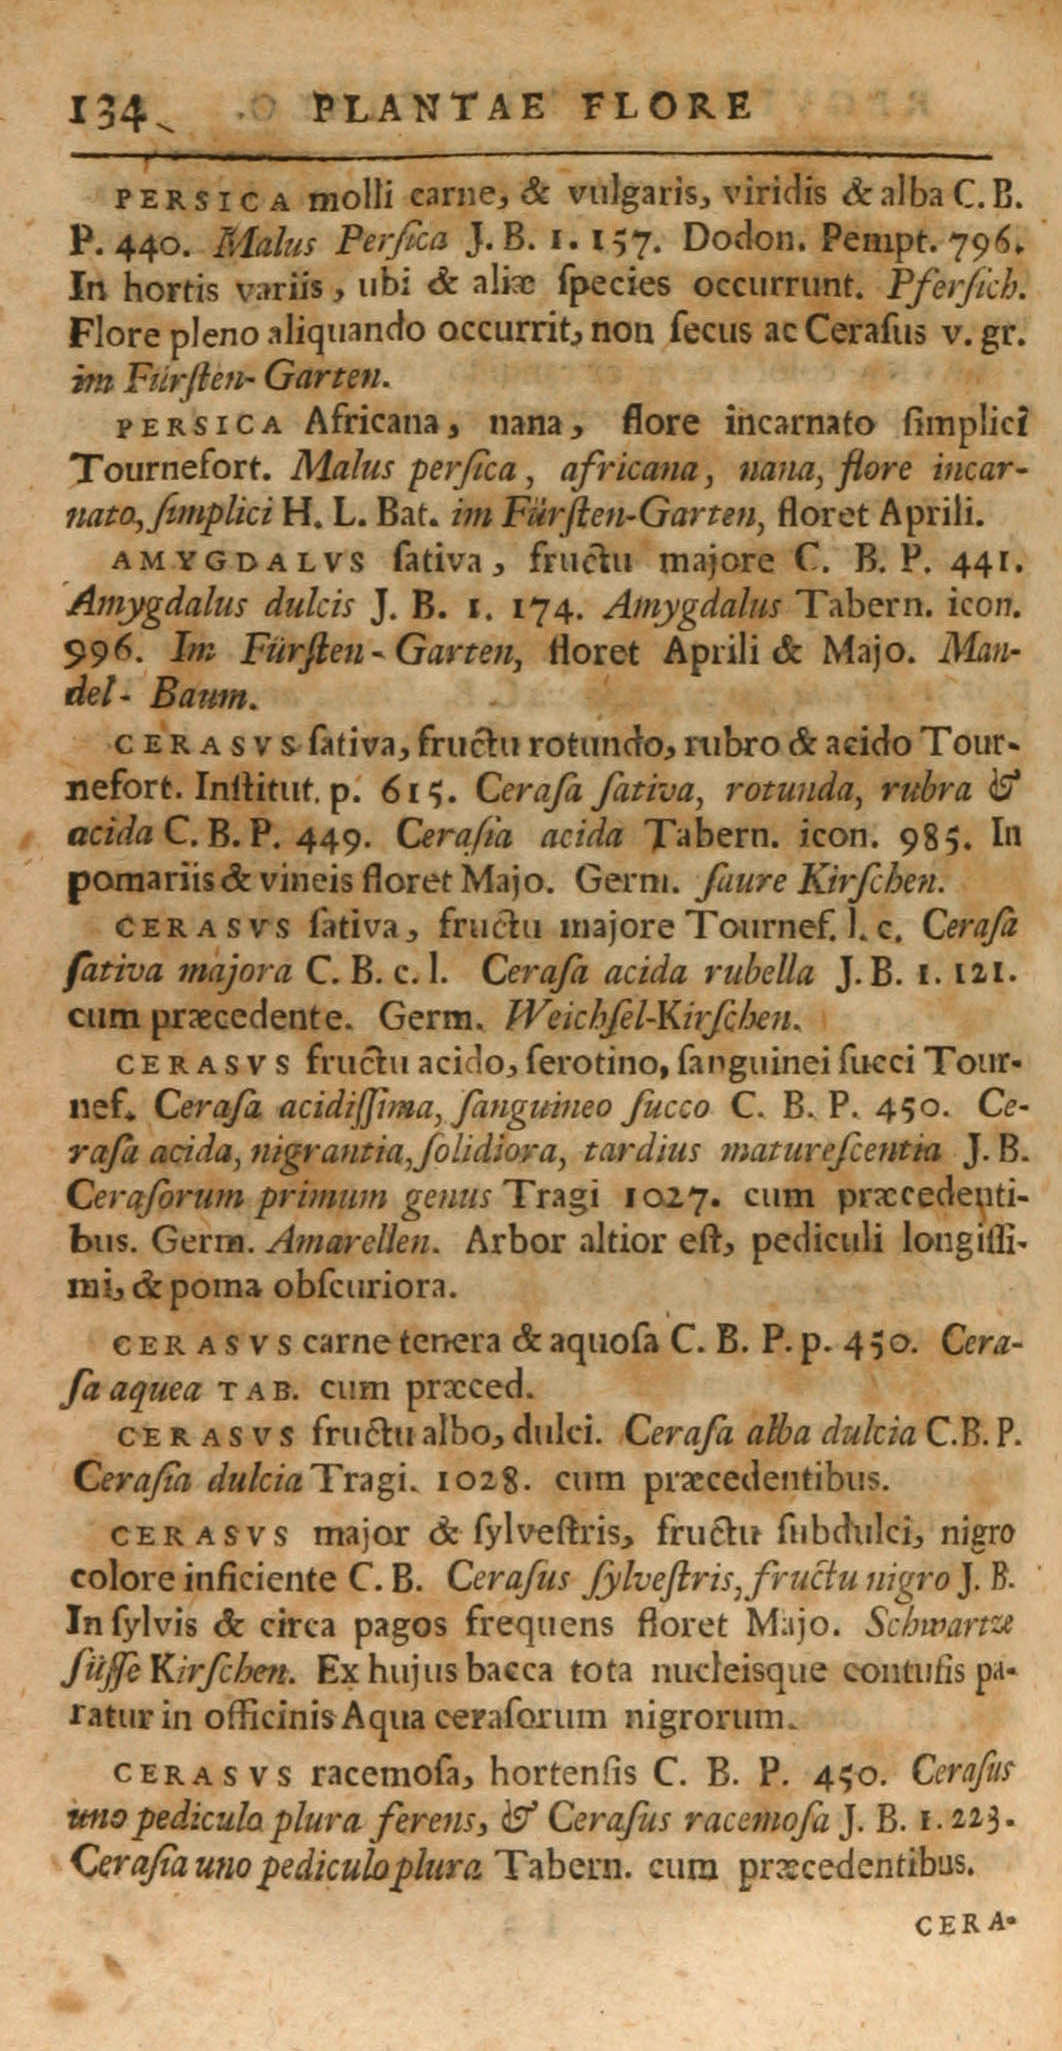 134 PLANTAE FLORE
PERSICA molli carne, & vulgaris, viridis & alba C. B.
P. 440. Malus Perſica J. B. 1. 157. Dodon. Pempt. 796.
In hortis variis, ubi & aliæ ſpecies occurrunt. Pferſich.
Flore pleno aliquando occurrit, non ſecus ac Ceraſus v. gr.
im Fürſten-Garten.
PERSICA Africana, nana, flore incarnato ſimplici
Tournefort. Malus perſica, africana, nana, flore incar-
nato, ſimplici H. L. Bat. im Fürſten-Garten, floret Aprili.
AMYGDALVS ſativa, fructu majore C. B. P. 441.
Amygdalus dulcis J. B. 1. 174. Amygdalus Tabern. icon.
996. Im Fürſten-Garten, floret Aprili & Majo. Man-
del-Baum.
CERASVS ſativa, fructu rotundo, rubro & acido Tour-
nefort. Inſtitut. p. 615. Ceraſa ſativa, rotunda, rubra &
acida C. B. P. 449. Ceraſia acida Tabern. icon. 985. In
pomariis & vineis floret Majo. Germ. ſaure Kirſchen.
CERASVS ſativa, fructu majore Tournef. l. c. Ceraſa
ſativa majora C. B. c. l. Ceraſa acida rubella J. B. 1. 121.
cum præcedente. Germ. Weichſel-Kirſchen.
CERASVS fructu acido, ſerotino, ſanguinei ſucci Tour-
nef. Ceraſa acidiſſima, ſanguineo ſucco C. B. P. 450. Ce-
raſa acida, nigrantia, ſolidiora, tardius matureſcentia J. B.
Ceraſorum primum genus Tragi 1027. cum præcedenti-
bus. Germ. Amarellen. Arbor altior eſt, pediculi longiſſi-
mi, & poma obſcuriora.
CERASVS carne tenera & aquoſa C. B. P. p. 450. Cera-
ſa aquea TAB. cum præced.
CERASVS fructu albo, dulci. Ceraſa alba dulcia C. B. P.
Ceraſia dulcia Tragi. 1028. cum præcedentibus.
CERASVS major & ſylveſtris, fructu ſubdulci, nigro
colore inficiente C. B. Ceraſus ſylveſtris, fructu nigro J. B.
In ſylvis & circa pagos frequens floret Majo. Schwartze
ſüſſe Kirſchen. Ex hujus bacca tota nucleisque contuſis pa-
ratur in officinis Aqua ceraſorum nigrorum.
CERASVS racemoſa, hortenſis C. B. P. 450. Ceraſus
uno pediculo plura ferens, & Ceraſus racemoſa J. B. 1. 223.
Ceraſia uno pediculo plura Tabern. cum præcedentibus.
CERA-